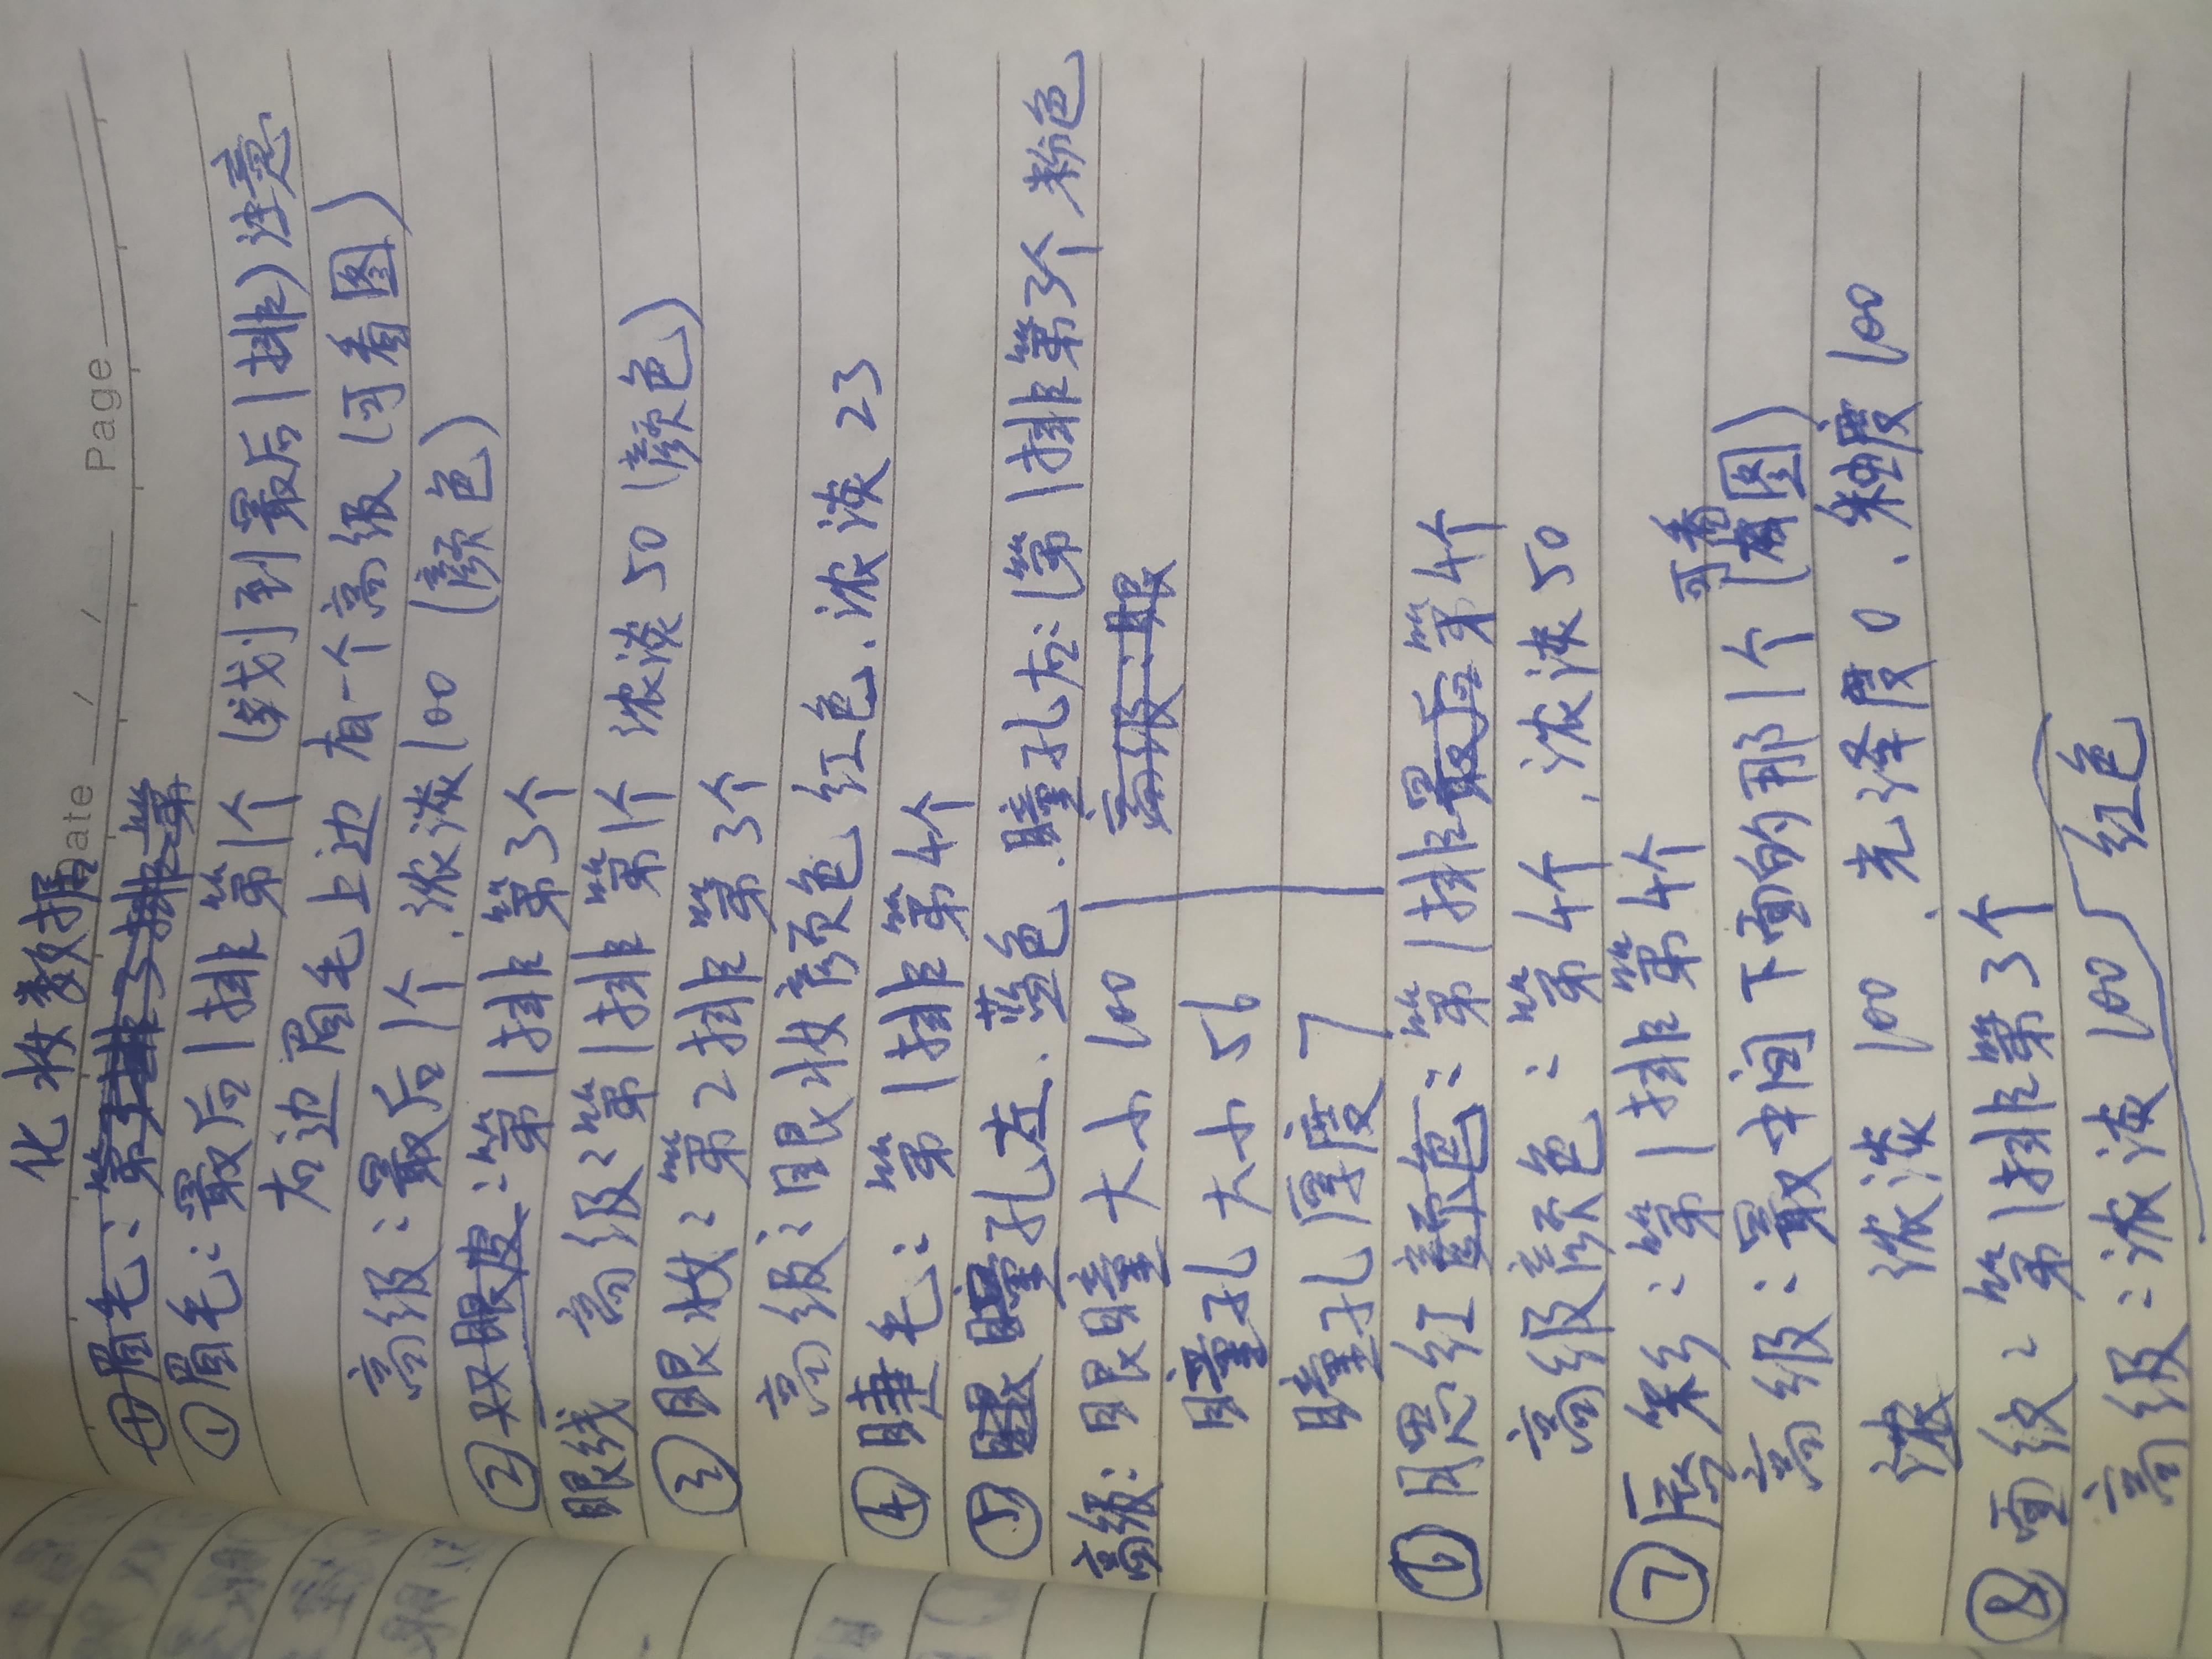 化妆数据
Date / / Page
①眉毛：第3排第
①眉毛：最后1排第1个（划到最后1排）注意
右边眉毛上边有一个高级（可看图）
高级：最后1个．浓淡100（颜色）
②双眼皮：第1排第3个
眼线 高级：第1排第1个 浓淡50（颜色）
③眼妆：第2排第3个
高级：眼妆颜色红色．浓淡23
④睫毛：第1排第4个
⑤瞳孔左．蓝色．瞳孔右：（第1排第3个粉色
高级：眼瞳大小100 高级：眼
瞳孔大小56
瞳孔厚度7
⑥腮红颜色：第1排最后第4个
高级颜色：第4个．浓淡50
⑦唇彩：第1排第4个
高级：最中间下面的那1个（可看图）
浓淡100．光泽度0．釉度100
⑧面纹：第1排第3个
高级：浓淡100 红色